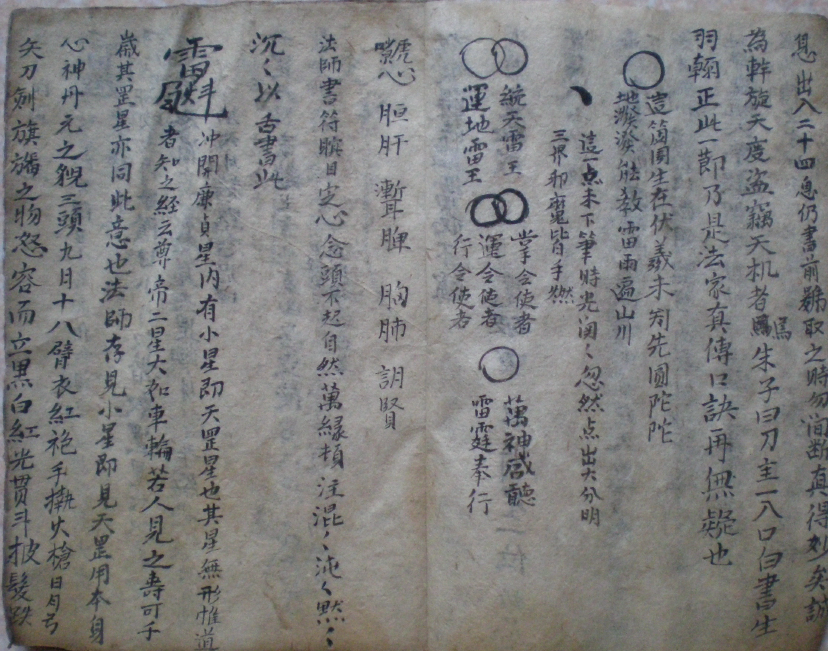 息出入二十四息仍書前號取之時勿間断真得妙矣誠
為斡旋天度盜竊天机者焉朱子曰刀圭一入口白書生
羽翰正此一節乃是法家真傳口訣再無疑也
這箇圓生在伏羲未判先圓陀陀
地潑潑能教雷雨遍山川
這一点未下筆時光闪々忽然点出大分明
三界邪魔皆手燃
統天雷王
運地雷王
掌令使者
運令使者
行令使者
萬神咸聽
雷霆奉行
心 脏肝 脾 胸肺 賢
法師書符瞑目定心念頭不起自然萬緣頓注混々沌々黙々
沉々以舌書此
冲開廉貞星内有小星即天罡星也其星無形惟道
者知之經云尊帝二星大如車輪若人見之壽可千
歲其罡星亦同此意也法師存見小星即見天罡用本身
心神丹元之貌三頭九目十八臂衣紅袍手擎火槍日月弓
矢刀劍旗旛之物怒容而立黑白紅光貫斗披髮跌